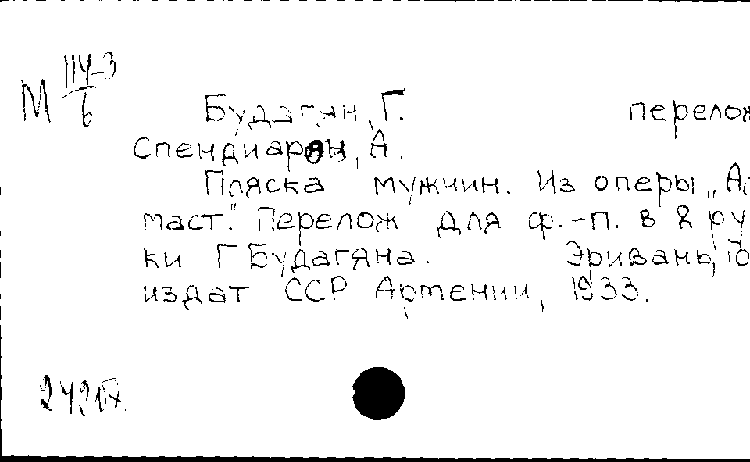 М III4-3/6
Будагян, Г. перелож
Спендиаров, А.
Пляска мужчин. Из оперы „Ал
маст". Перелож для ф.-п. в 2 ру
ки Г Будагяна. Эривань, Го
издат ССР Армении, 1933.